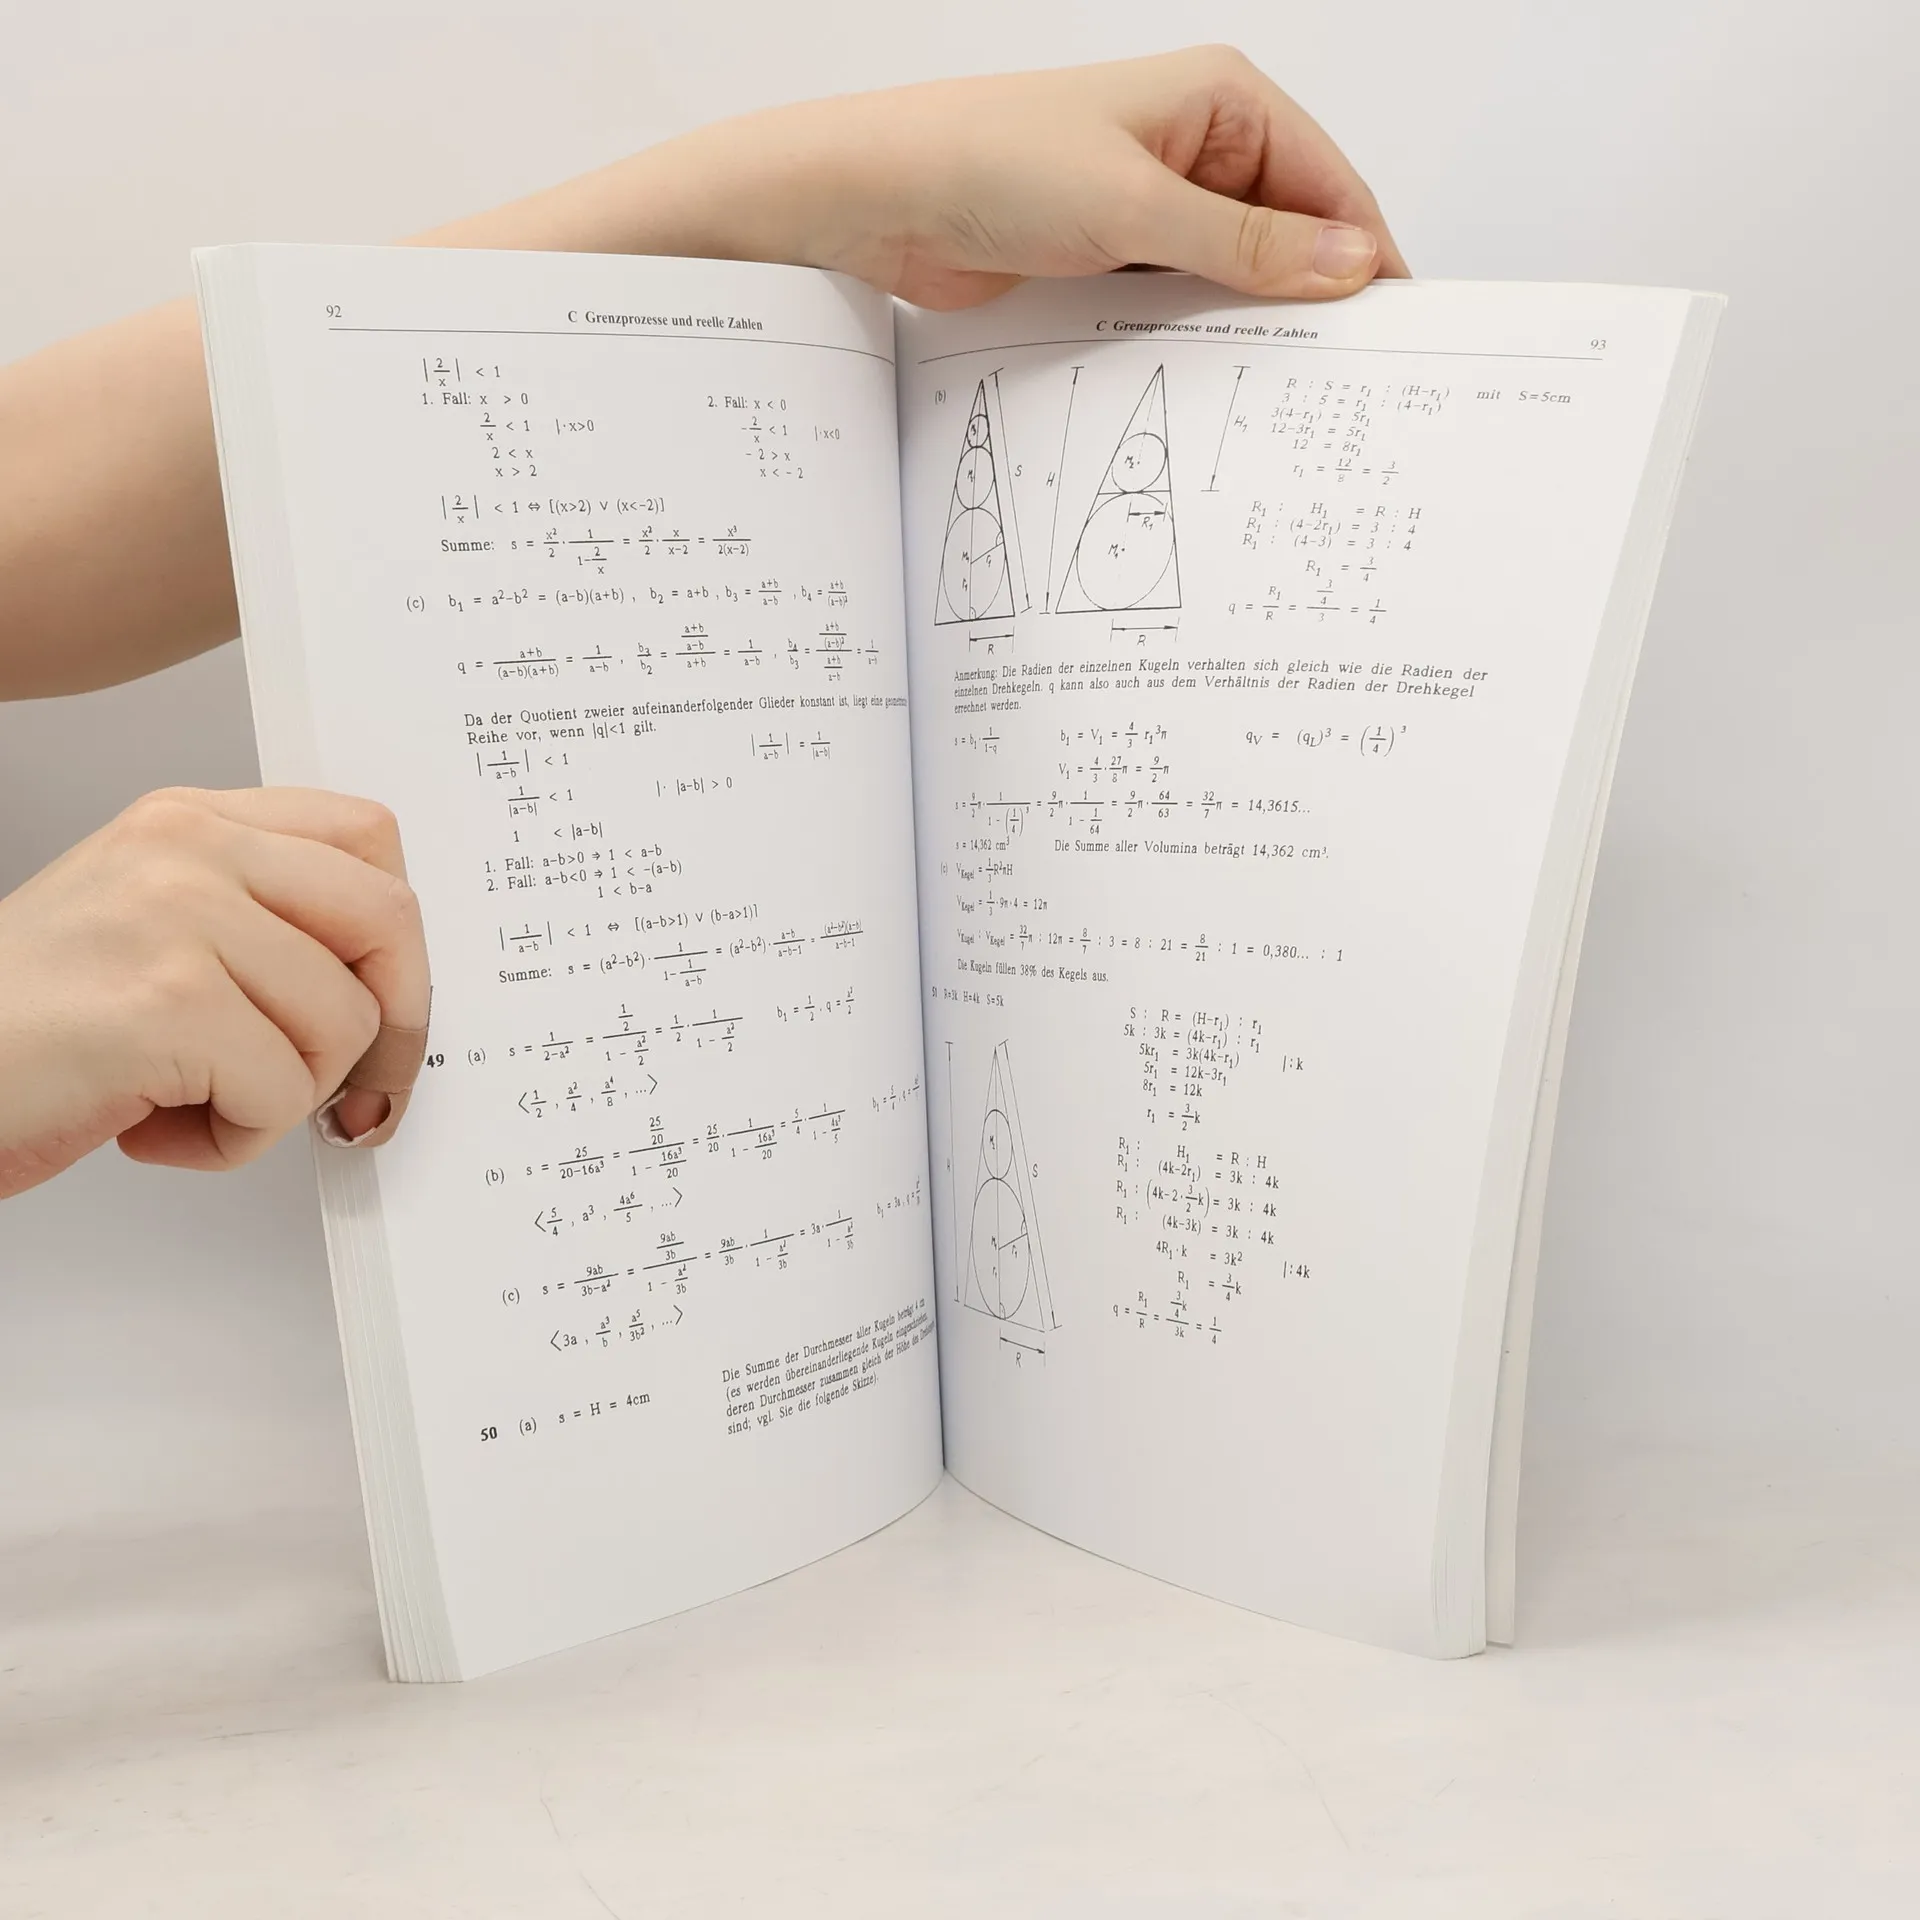 92
C Grenzprozesse und reelle Zahlen
|2/x| < 1
1. Fall: x > 0
2. Fall: x < 0
2/x < 1 |·x>0
-2/x < 1 |·x<0
2 < x
-2 > x
x > 2
x < -2
|2/x| < 1 ⇔ [(x>2) ∨ (x<-2)]
Summe: s = x²/2 · 1/(1-2/x) = x²/2 · x/(x-2) = x³/(2(x-2))
(c) b₁ = a²-b² = (a-b)(a+b) , b₂ = a+b , b₃ = (a+b)/(a-b) , b₄ = (a+b)/(a-b)²
q = (a+b)/((a-b)(a+b)) = 1/(a-b) , b₃/b₂ = ((a+b)/(a-b))/(a+b) = 1/(a-b) , b₄/b₃ = ((a+b)/(a-b)²)/((a+b)/(a-b)) = 1/(a-b)
Da der Quotient zweier aufeinanderfolgender Glieder konstant ist, liegt eine
Reihe vor, wenn |q|<1 gilt.
|1/(a-b)| < 1 |1/(a-b)| = 1/|a-b|
1/|a-b| < 1 |· |a-b| > 0
1 < |a-b|
1. Fall: a-b>0 ⇒ 1 < a-b
2. Fall: a-b<0 ⇒ 1 < -(a-b)
1 < b-a
|1/(a-b)| < 1 ⇔ [(a-b>1) ∨ (b-a>1)]
Summe: s = (a²-b²) · 1/(1-1/(a-b)) = (a²-b²) · (a-b)/(a-b-1) = (a²-b²)(a-b)/(a-b-1)
49 (a) s = 1/(2-a²) = (1/2)/(1 - a²/2) = 1/2 · 1/(1 - a²/2) b₁ = 1/2 , q = a²/2
⟨1/2 , a²/4 , a⁴/8 , ...⟩
(b) s = 25/(20-16a³) = (25/20)/(1 - 16a³/20) = 25/20 · 1/(1 - 16a³/20) = 5/4 · 1/(1 - 4a³/5)
⟨5/4 , a³ , 4a⁶/5 , ...⟩
(c) s = 9ab/(3b-a²) = (9ab/3b)/(1 - a²/3b) = 9ab/3b · 1/(1 - a²/3b) = 3a · 1/(1 - a²/3b)
⟨3a , a³/b , a⁵/3b² , ...⟩
50 (a) s = H = 4cm
Die Summe der Durchmesser aller Kugeln beträgt 4 cm
(es werden übereinanderliegende Kugeln eingeschrieben,
deren Durchmesser zusammen gleich der Höhe des
sind; vgl. Sie die folgende Skizze).
C Grenzprozesse und reelle Zahlen
93
(b)
S
H
M₁
M₂
R₁
R
H₁
R : S = r₁ : (H-r₁) mit S=5cm
3 : 5 = r₁ : (4-r₁)
3(4-r₁) = 5r₁
12-3r₁ = 5r₁
12 = 8r₁
r₁ = 12/8 = 3/2
R₁ : H₁ = R : H
R₁ : (4-2r₁) = 3 : 4
R₁ : (4-3) = 3 : 4
R₁ = 3/4
q = R₁/R = (3/4)/3 = 1/4
Anmerkung: Die Radien der einzelnen Kugeln verhalten sich gleich wie die Radien der
einzelnen Drehkegeln. q kann also auch aus dem Verhältnis der Radien der Drehkegel
errechnet werden.
s = b₁ · 1/(1-q) b₁ = V₁ = 4/3 r₁³π qV = (qL)³ = (1/4)³
V₁ = 4/3 · 27/8 π = 9/2 π
s = 9/2 π · 1/(1 - (1/4)³) = 9/2 π · 1/(1 - 1/64) = 9/2 π · 64/63 = 32/7 π = 14,3615...
s = 14,362 cm³ Die Summe aller Volumina beträgt 14,362 cm³.
(c) VKegel = 1/3 R²πH
VKegel = 1/3 · 9π · 4 = 12π
VKugel : VKegel = 32/7 π : 12π = 8/7 : 3 = 8 : 21 = 8/21 : 1 = 0,380... : 1
Die Kugeln füllen 38% des Kegels aus.
51 R=3k H=4k S=5k
S : R = (H-r₁) : r₁
5k : 3k = (4k-r₁) : r₁
5kr₁ = 3k(4k-r₁) |:k
5r₁ = 12k-3r₁
8r₁ = 12k
r₁ = 3/2 k
R₁ : H₁ = R : H
R₁ : (4k-2r₁) = 3k : 4k
R₁ : (4k-2·3/2 k) = 3k : 4k
R₁ : (4k-3k) = 3k : 4k
4R₁·k = 3k² |:4k
R₁ = 3/4 k
q = R₁/R = (3/4 k)/3k = 1/4
H
S
R